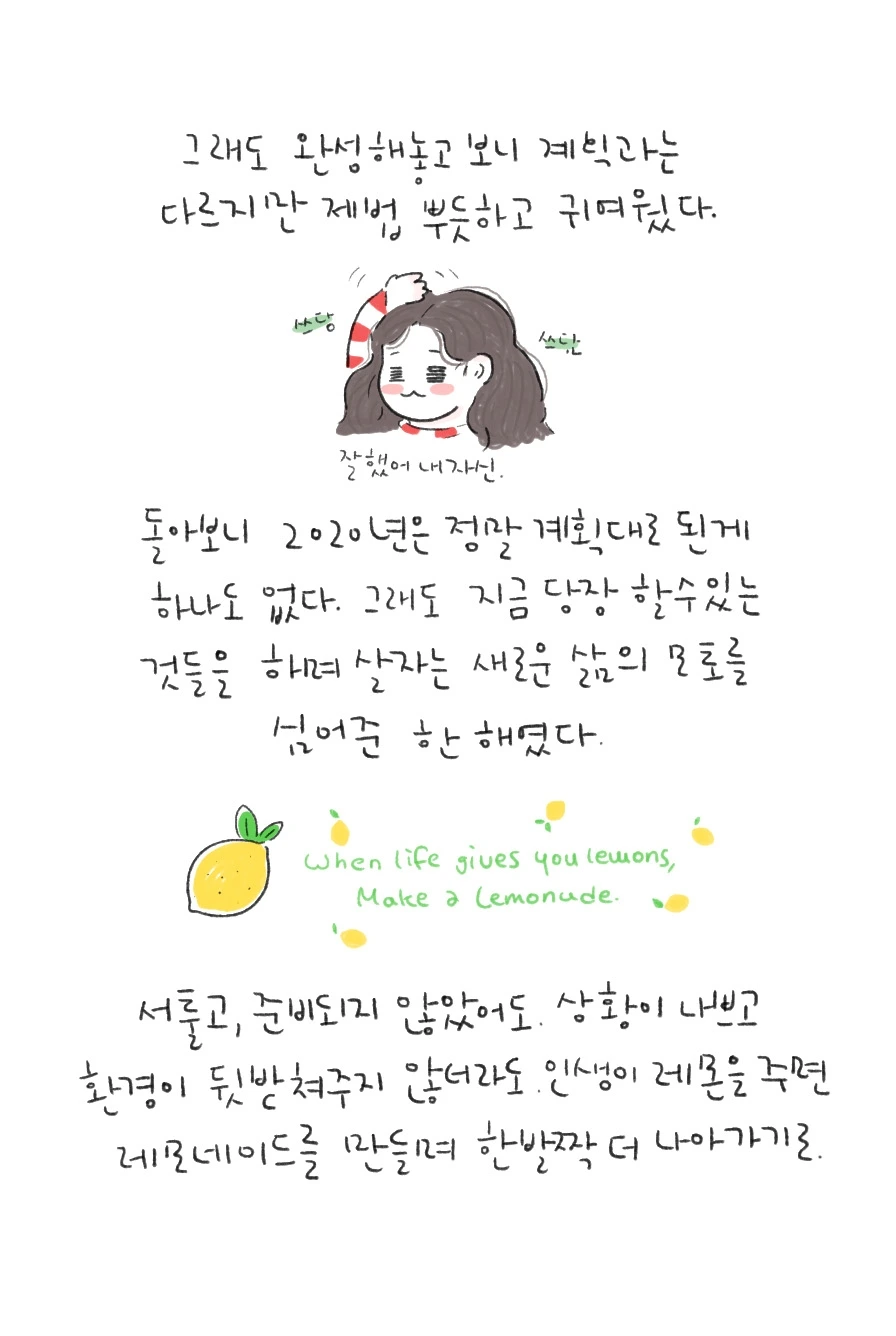 그래도 완성해놓고 보니 계획과는
다르지만 제법 뿌듯하고 귀여웠다.
쓰담
쓰담
잘했어 내 자신.
돌아보니 2020년은 정말 계획대로 된게
하나도 없다. 그래도 지금 당장 할수있는
것들을 하며 살자는 새로운 삶의 모토를
심어준 한 해였다.
When life gives you lemons,
Make a Lemonude.
서툴고, 준비되지 않았어도. 상황이 나쁘고
환경이 뒷받쳐주지 않더라도. 인생이 레몬을 주면
레모네이드를 만들며 한발짝 더 나아가기로.